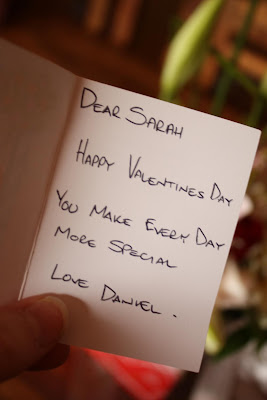 Dear Sarah
Happy Valentines Day
You Make Every Day
More Special
Love Daniel.